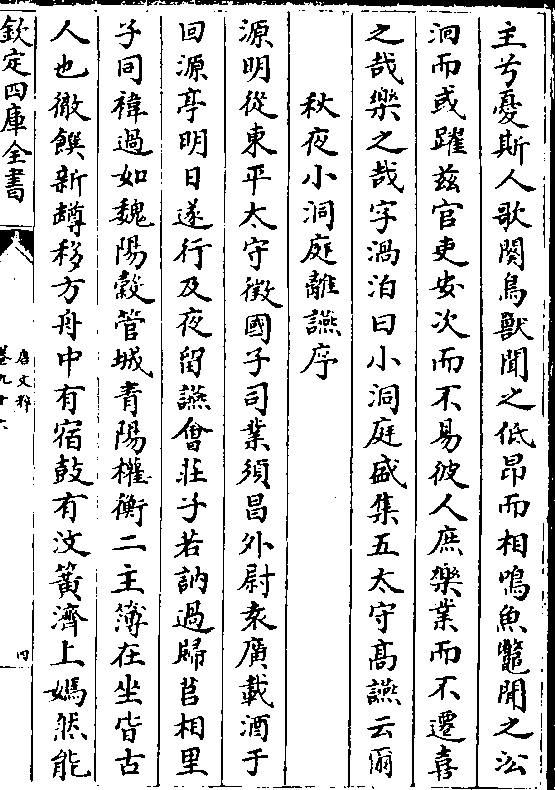 主兮憂斯人歌闋鳥獸聞之低昂而相鳴魚鼈聞之沿
洄而或躍兹官吏安次而不易彼人庶樂業而不遷喜
之哉樂之哉字渦泊曰小洞庭盛集五太守髙讌云爾
秋夜小洞庭離讌序
源明從東平太守徴國子司業須昌外尉袁廣載酒于
回源亭明日遂行及夜留讌㑹莊子若訥過歸莒相里
子同禕過如魏陽榖管城青陽權衡二主簿在坐皆古
人也徹饌新罇移方舟中有宿鼓有汶簧濟上嫣然能
欽定四庫全書
唐文粹
卷九十六
四